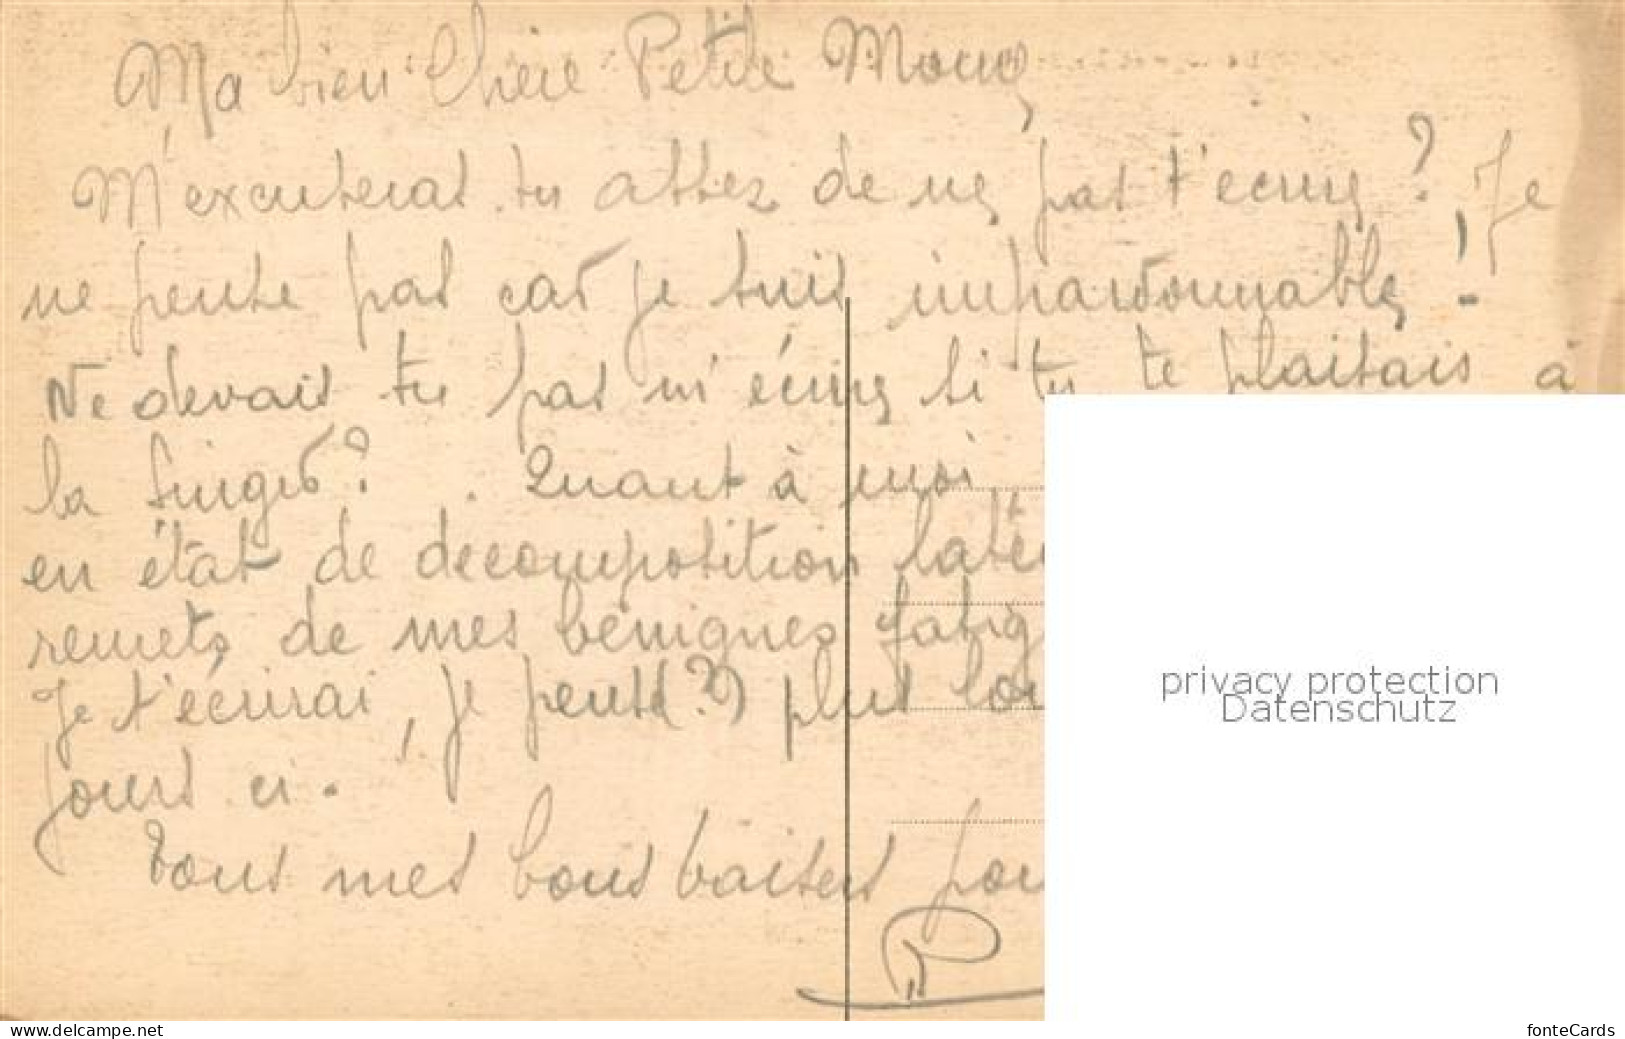 Ma bien Chère Petite
M'excuseras tu assez de ne pas t'écrire ? Je
ne pense pas car je suis impardonnable !
Ne devais tu pas m'écrire si tu te plaisais à
la ? Quant à moi,
en état de décomposition
remets de mes bénignes
Je t'écrirai, je pense(?) plus
jours ci.
Tous mes bons baisers
privacy protection
Datenschutz
www.delcampe.net
fonteCards